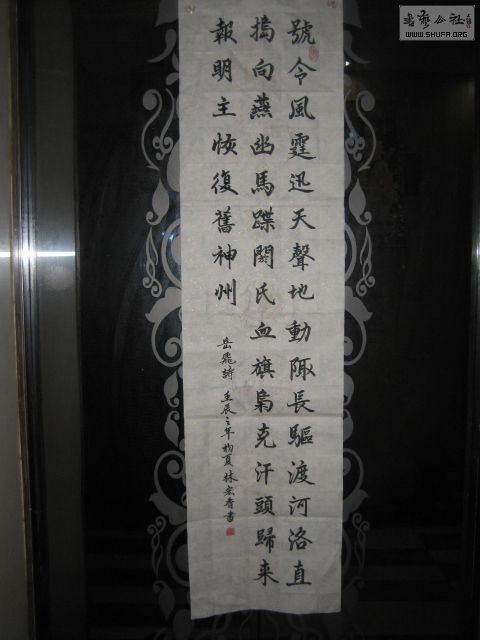 號令風霆迅天聲地動陬長驅渡河洛直
擣向燕幽馬蹀閼氏血旗梟克汗頭歸来
報明主恢復舊神州
岳飛詩 壬辰之年初夏林宏香書
書艺公社
WWW.SHUFA.ORG